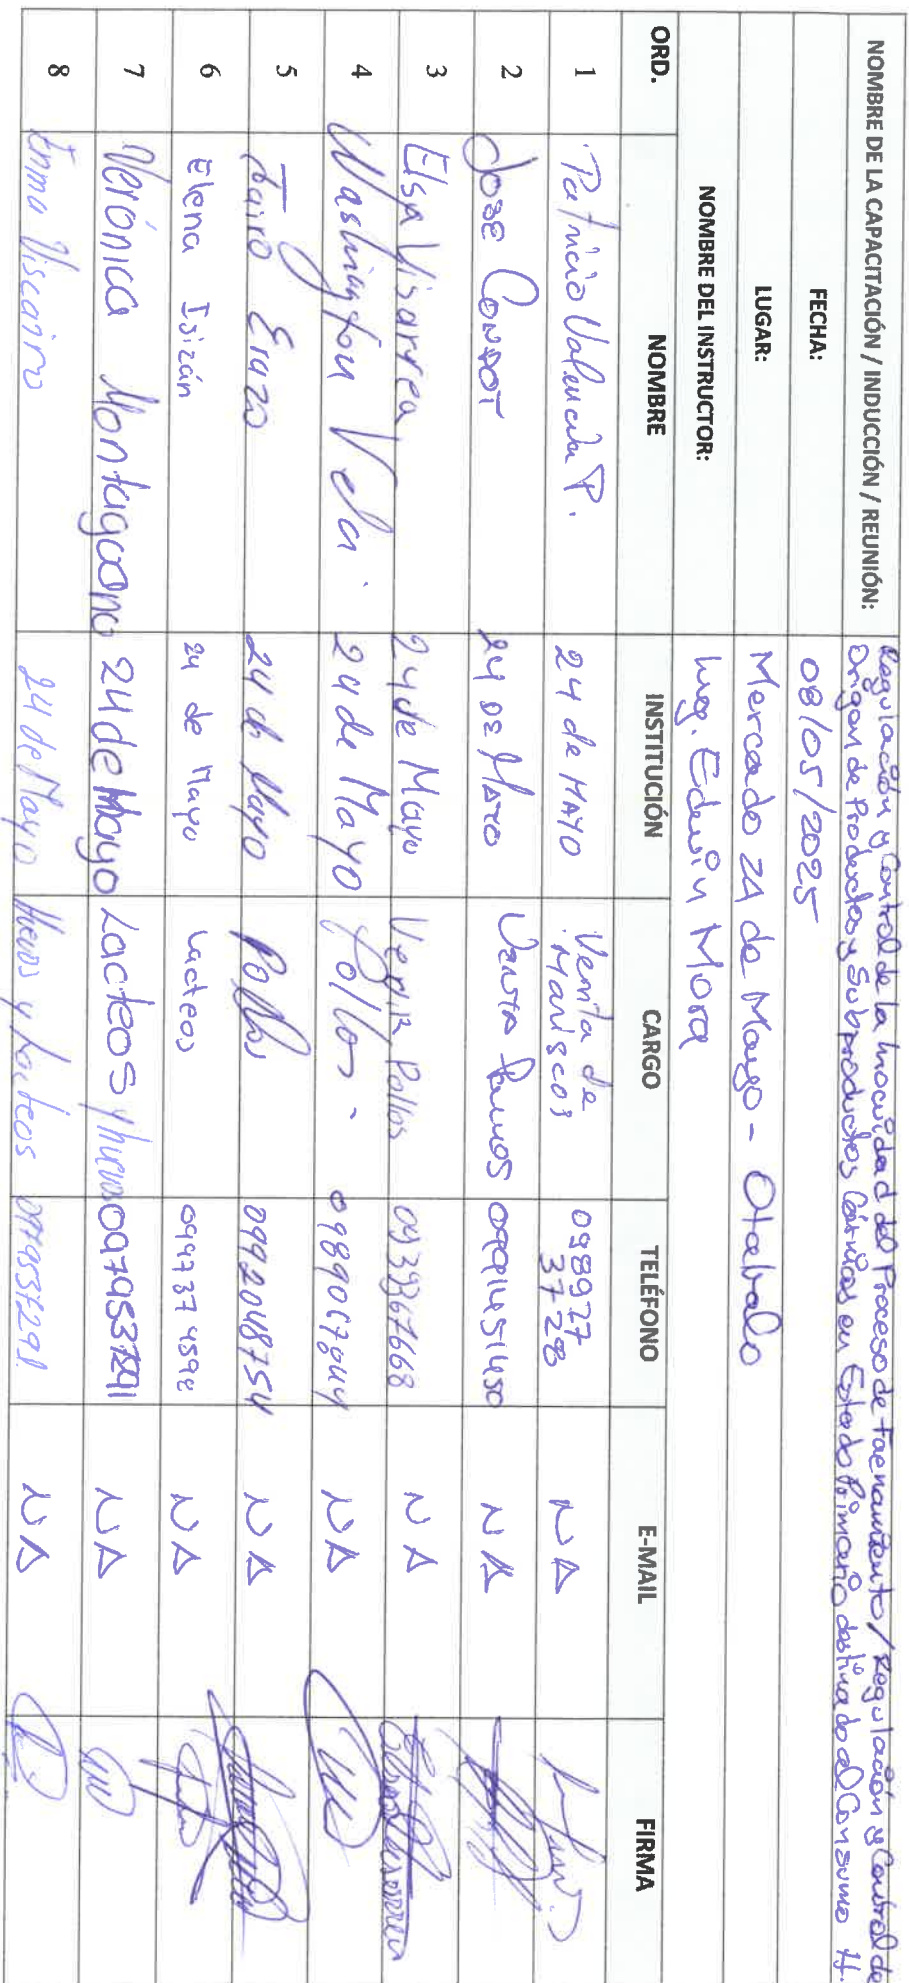 NOMBRE DE LA CAPACITACIÓN / INDUCCIÓN / REUNIÓN: Regulación y Control de la Inocuidad del Proceso de Faenamiento / Regulación y Control de
Origen de Productos y Subproductos Cárnicos en Estado Primario destinado al Consumo H.
FECHA: 08/05/2025
LUGAR: Mercado 24 de Mayo - Otabalo
NOMBRE DEL INSTRUCTOR: Ing. Edwin Mora
ORD. NOMBRE INSTITUCIÓN CARGO TELÉFONO E-MAIL FIRMA
1 Patricio Valencia P. 24 de MAYO Venta de Mariscos 098977 3728 NA
2 Jose Condor 24 DE MAYO Venta 0999145450 NA
3 Elsa Visarrea 24 de Mayo Venta Pollos 0939867668 NA
4 Washington Vela. 24 de Mayo Pollos - 0989067944 NA
5 Jairo Erazo 24 de Mayo Pollos 0992048754 NA
6 Elena Isizán 24 de Mayo Lacteos 0997374598 NA
7 Verónica Montaguano 24 de Mayo Lacteos y huevos NA
8 Enma Viscaino 24 de Mayo Huevos y Lacteos 0979537291 NA